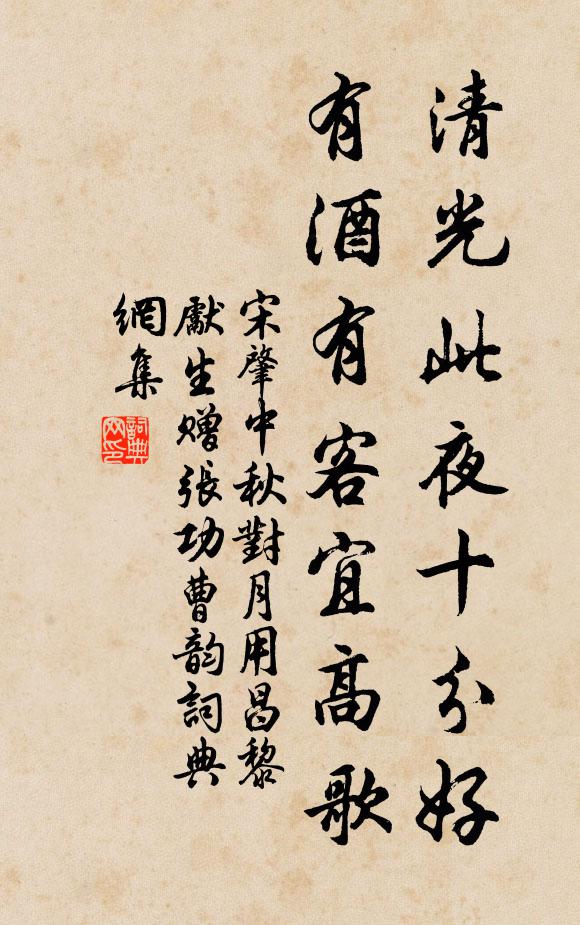 清光此夜十分好
有酒有客宜高歌
宋肇中秋對月用昌黎
獻生贈張功曹韵詞典
網集
詞典
网印